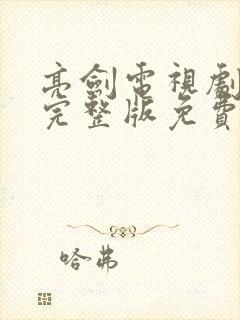 亮劍電視劇
完整版免費
哈弗